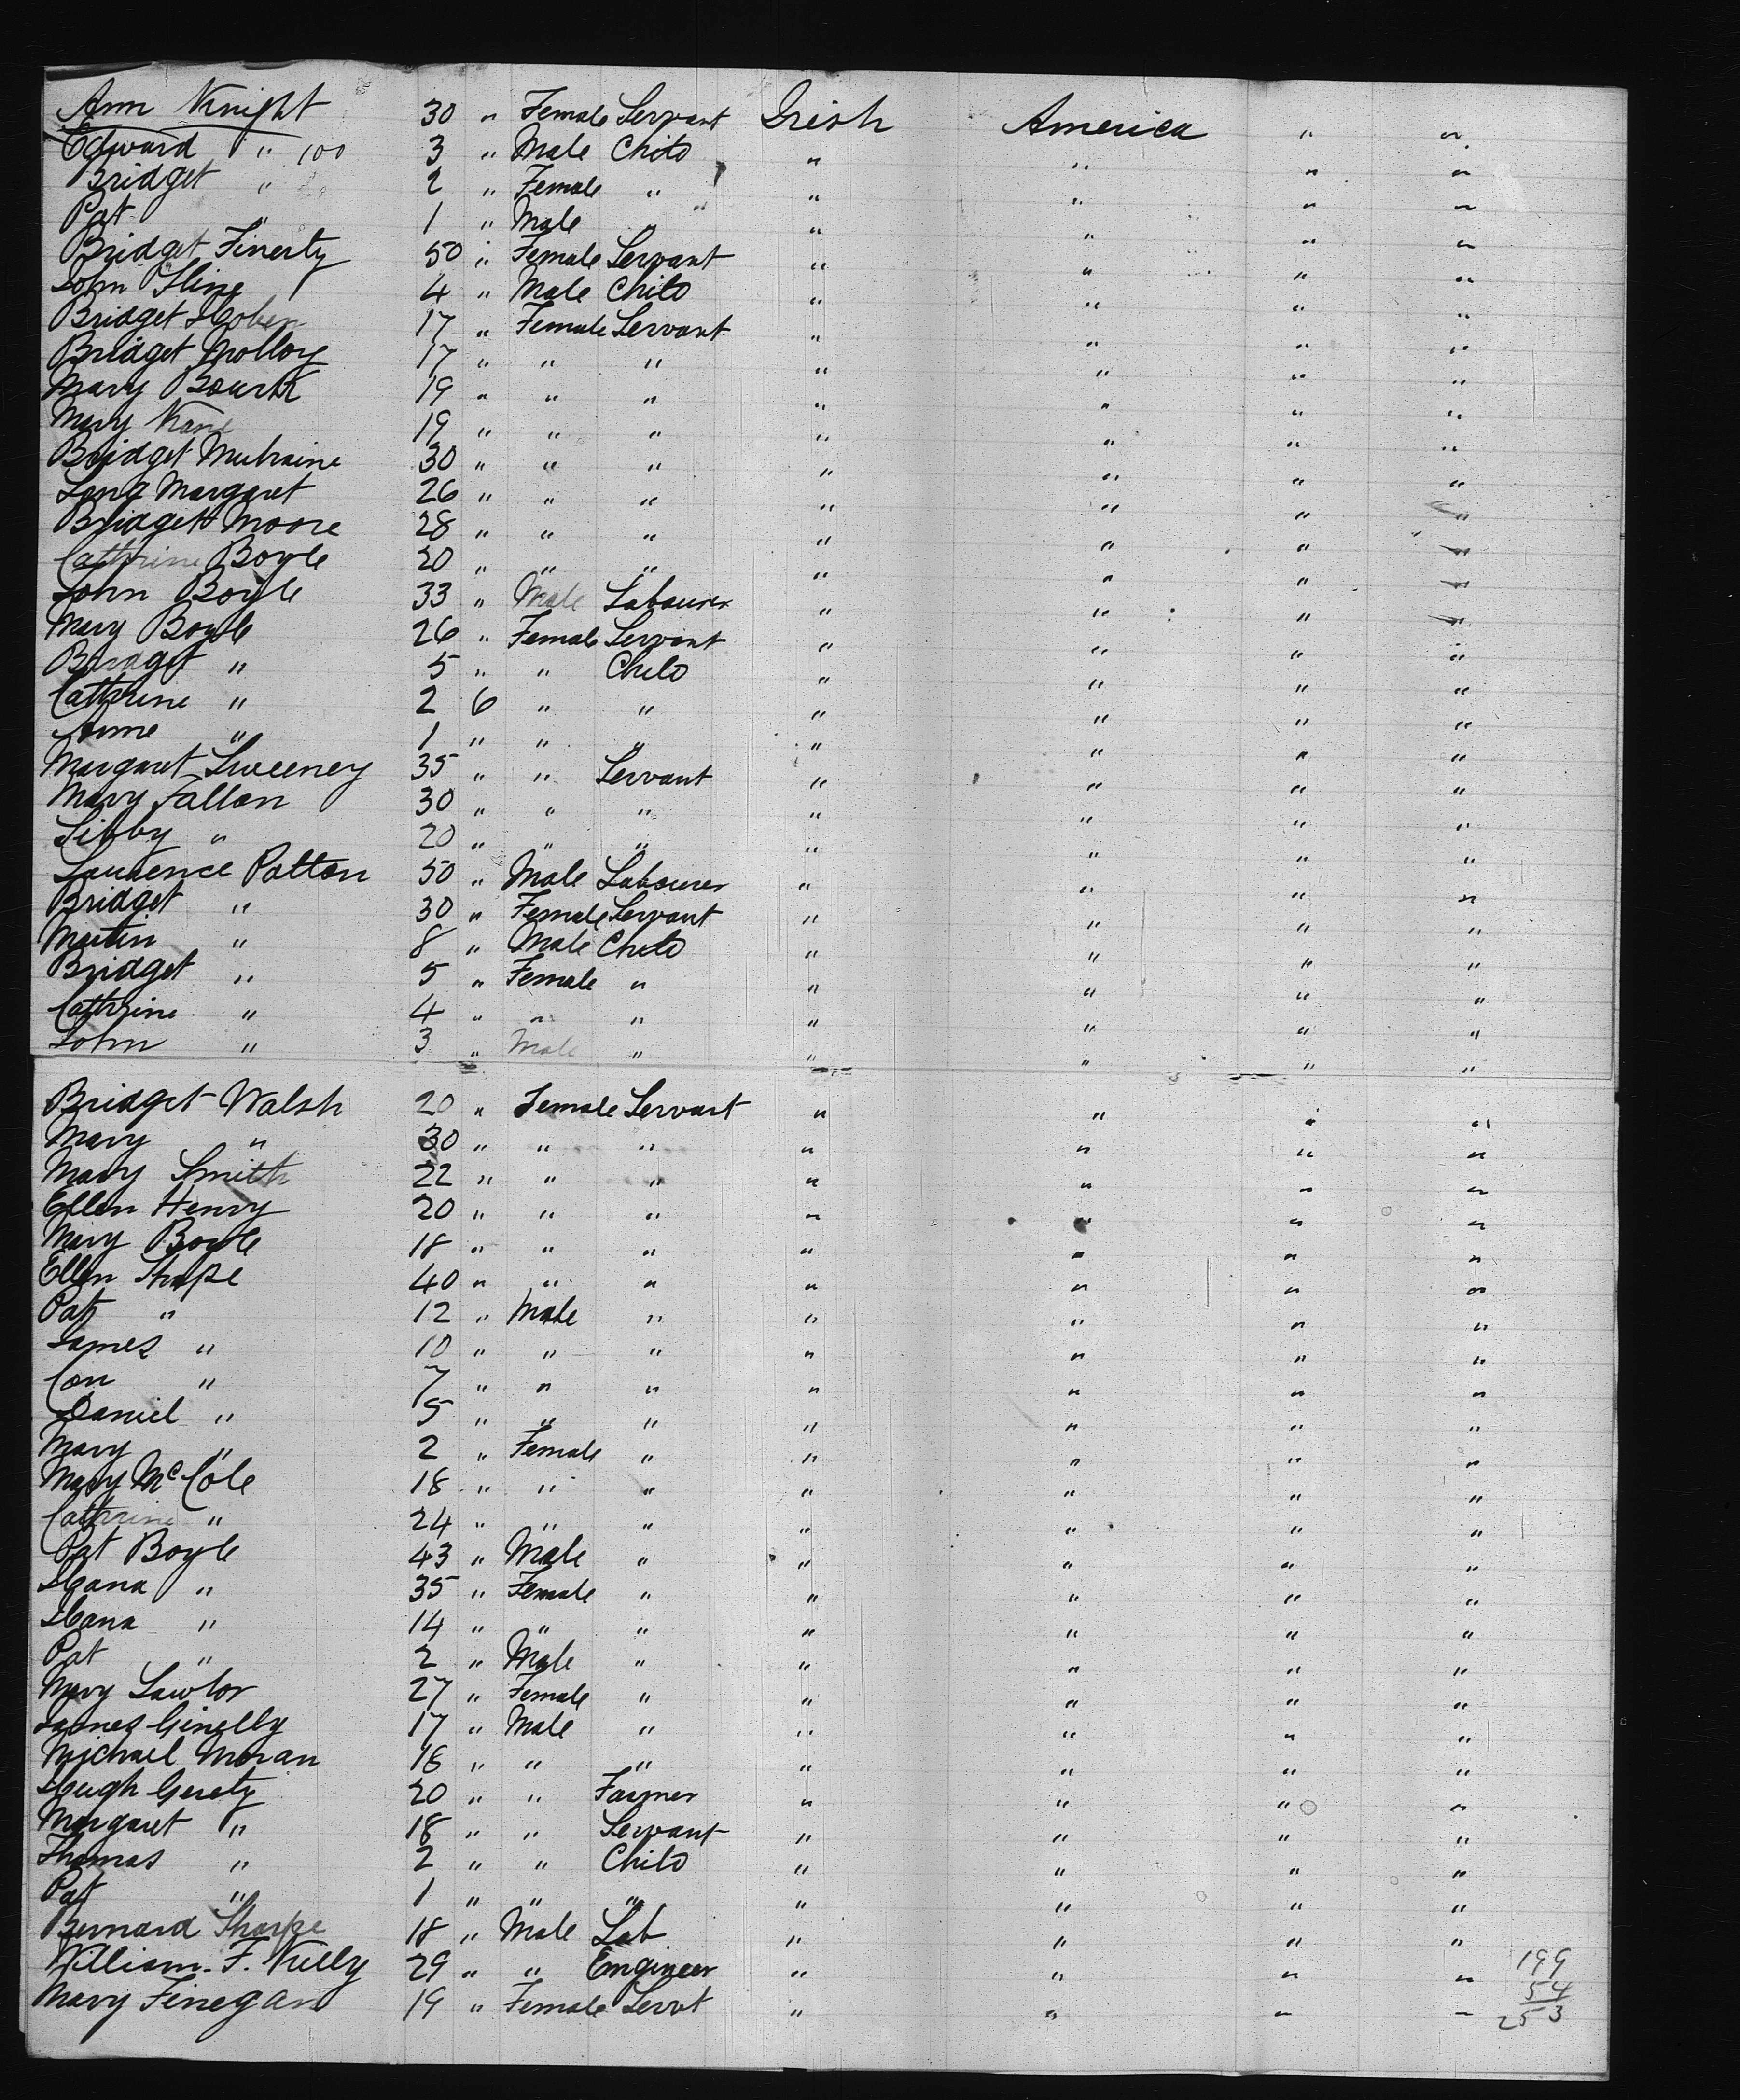 Ann Knight 30 " Female Servant Irish America " "
Edward " 100 3 " Male Child " " " "
Bridget " 2 " Female " " " " "
Pat " 1 " Male " " " " "
Bridget Finerty 50 " Female Servant " " " "
John 4 " Male Child " " " "
Bridget Hoben 17 " Female Servant " " " "
Bridget Molloy 17 " " " " " " "
Mary Bourk 19 " " " " " " "
Mary Kane 19 " " " " " " "
Bridget Mulraine 30 " " " " " " "
Lang Margaret 26 " " " " " " "
Bridget Moore 28 " " " " " " "
Cathrine Boyle 20 " " " " " " "
John Boyle 33 " Male Labourer " " " "
Mary Boyle 26 " Female Servant " " " "
Bridget " 5 " " Child " " " "
Cathrine " 2 6 " " " " " "
Anne " 1 " " " " " " "
Margaret Sweeney 35 " " Servant " " " "
Mary Fallon 30 " " " " " " "
Sibby " 20 " " " " " " "
Laurence Patton 50 " Male Labourer " " " "
Bridget " 30 " Female Servant " " " "
Martin " 8 " Male Child " " " "
Bridget " 5 " Female " " " " "
Cathrine " 4 " " " " " " "
John " 3 " Male " " " " "
Bridget Walsh 20 " Female Servant " " " "
Mary " 30 " " " " " " "
Mary Smith 22 " " " " " " "
Ellen Henry 20 " " " " " " "
Mary Boyle 18 " " " " " " "
Ellen Sharpe 40 " " " " " " "
Pat " 12 " Male " " " " "
James " 10 " " " " " " "
Con " 7 " " " " " " "
Daniel " 5 " " " " " " "
Mary " 2 " Female " " " " "
Mary McCole 18 " " " " " " "
Cathrine " 24 " " " " " " "
Pat Boyle 43 " Male " " " " "
Hana " 35 " Female " " " " "
Hana " 14 " " " " " " "
Pat " 2 " Male " " " " "
Mary Lawlor 27 " Female " " " " "
James Ginelly 17 " Male " " " " "
Michael Moran 18 " " " " " " "
Hugh Gerety 20 " " Farmer " " " "
Margaret " 18 " " Servant " " " "
Thomas " 2 " " Child " " " "
Pat " 1 " " " " " " "
Bernard Sharpe 18 " Male Lab " " " "
William F. Kelly 29 " " Engineer " " " " 199
Mary Finegan 19 " Female Servt " " " " 54
253